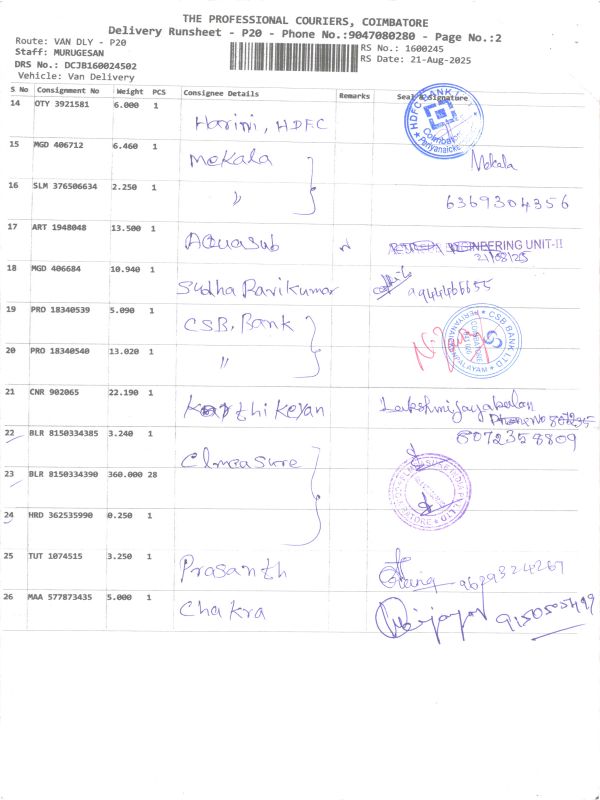 THE PROFESSIONAL COURIERS, COIMBATORE
Delivery Runsheet - P20 - Phone No.:9047080280 - Page No.:2
Route: VAN DLY - P20
RS No.: 1600245
Staff: MURUGESAN
RS Date: 21-Aug-2025
DRS No.: DCJB160024502
Vehicle: Van Delivery
S No Consignment No Weight PCS Consignee Details Remarks Seal & Signature
14 OTY 3921581 6.000 1 Harini, HDFC
HDFC BANK
Coimbatore
15 MGD 406712 6.460 1 Mekala Mekala
16 SLM 376506634 2.250 1 〃 6369304356
17 ART 1948048 13.500 1 Aquasub ENGINEERING UNIT-II
21/08/25
18 MGD 406684 10.940 1 Sudha Ravikumar 9944466655
19 PRO 18340539 5.090 1 CSB, Bank
CSB BANK LTD
20 PRO 18340540 13.020 1 〃
21 CNR 902065 22.190 1 Karthikeyan Lakshmi
8072358809
22 BLR 8150334385 3.240 1 Elmeasure
23 BLR 8150334390 360.000 28
24 HRD 362535990 0.250 1
25 TUT 1074515 3.250 1 Prasanth 9629324267
26 MAA 577873435 5.000 1 Chakra